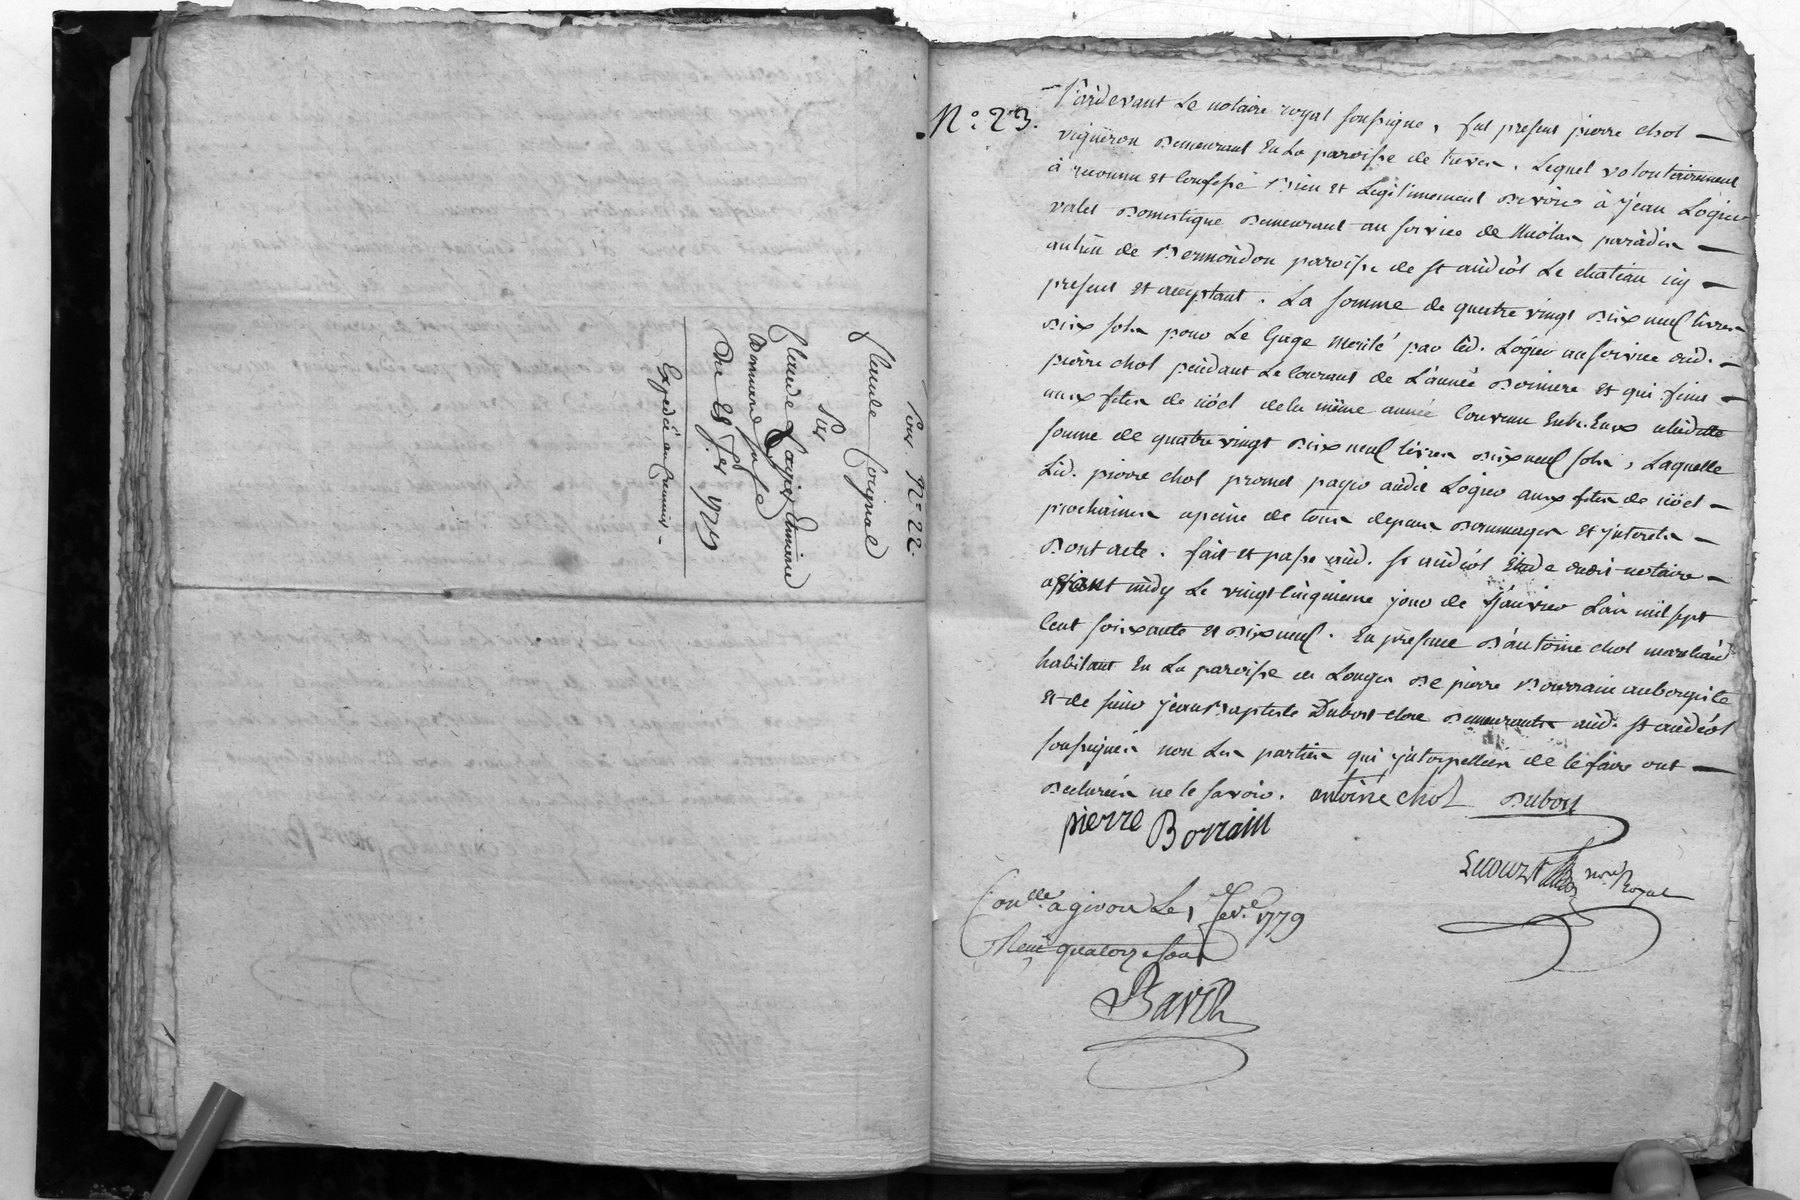 Pour N.° 22.
flaude
Sur
Claude Logier
Du 25 Jer 1779
Expedié au Creancier
N.° 23.
Pardevant Le notaire royal soussigne, fut present pierre chol
vigneron demeurant En La paroisse de treves. Lequel volontairement
à reconnu et Confessé Bien et Legitimement Devoir à jean Logier
valet Domestique demeurant au service de Nicolas paradis
antin de Bermondon paroisse de st andéol Le chateau icy
present et acceptant. La somme de quatre vingt dix neuf livres
dix sols pour Le Gage merité par led. Logier au service dud.
pierre chol pendant Le Courant de L'année Derniere et qui finit
aux fetes de nöel de la même année Convenu Entr. Eux
somme de quatre vingt dix neuf livres dix neuf sols, Laquelle
Lid. pierre chol promet payer audit Logier aux fetes de nöel
prochaines apeine de tous depens Dommages et jnterets
Dont acte. fait et passé aud. st andéol Etude dudit notaire
avant midy Le vingt cinquieme jour de Janvier L'an mil sept
Cent soixante et dix neuf. En presence D'antoine chol marchand
habitant En La paroisse de Longes De pierre Bourrain aubergiste
et de sieur jean Baptiste Dubost clerc Demeurants aud. st andéol
soussignés non Les parties qui jnterpellées de le faire ont
Declarées ne le savoir. antoine chol Dubost
pierre Borrain
not Royal
Conlle a givors Le 1 fev.e 1779
Reçu quatorze sous